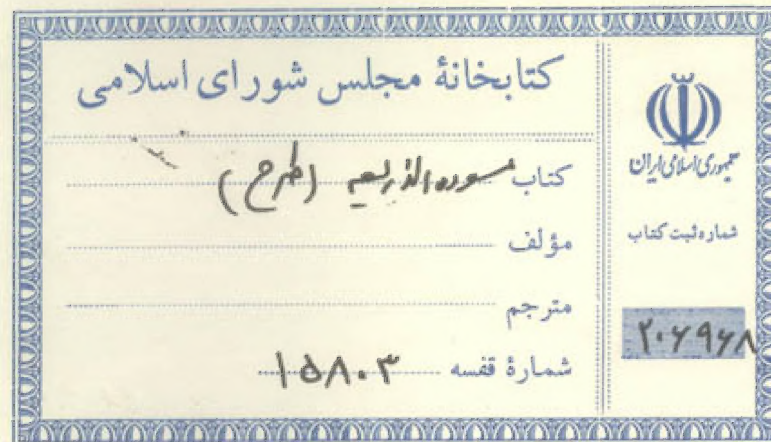 کتابخانهٔ مجلس شورای اسلامی
کتاب مسوده الذریعه (طرح)
مؤلف
مترجم
شمارهٔ قفسه ۱۵۸۰۳
جمهوری اسلامی ایران
شماره ثبت کتاب
۲۰۶۹۶۸